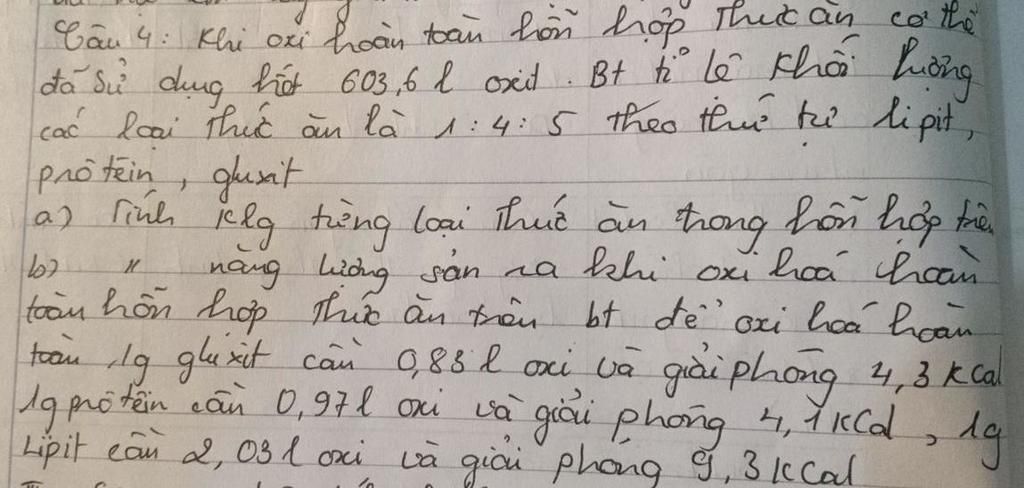 Câu 4: Khi oxi hoàn toàn hỗn hợp thức ăn cơ thể
đã sử dụng hết 603,6 l oxit. Bt tỉ lệ khối lượng
các loại thức ăn là 1:4:5 theo thứ tự lipit,
prôtêin, gluxit
a) Tính Klg từng loại thức ăn trong hỗn hợp trên
b) " năng lượng sản ra khi oxi hoá hoàn
toàn hỗn hợp thức ăn trên bt để oxi hoá hoàn
toàn 1g gluxit cần 0,83 l oxi và giải phóng 4,3 kcal
1g prôtêin cần 0,97 l oxi và giải phóng 4,1 kCal, 1g
Lipit cần 2,03 l oxi và giải phóng 9,3 kCal